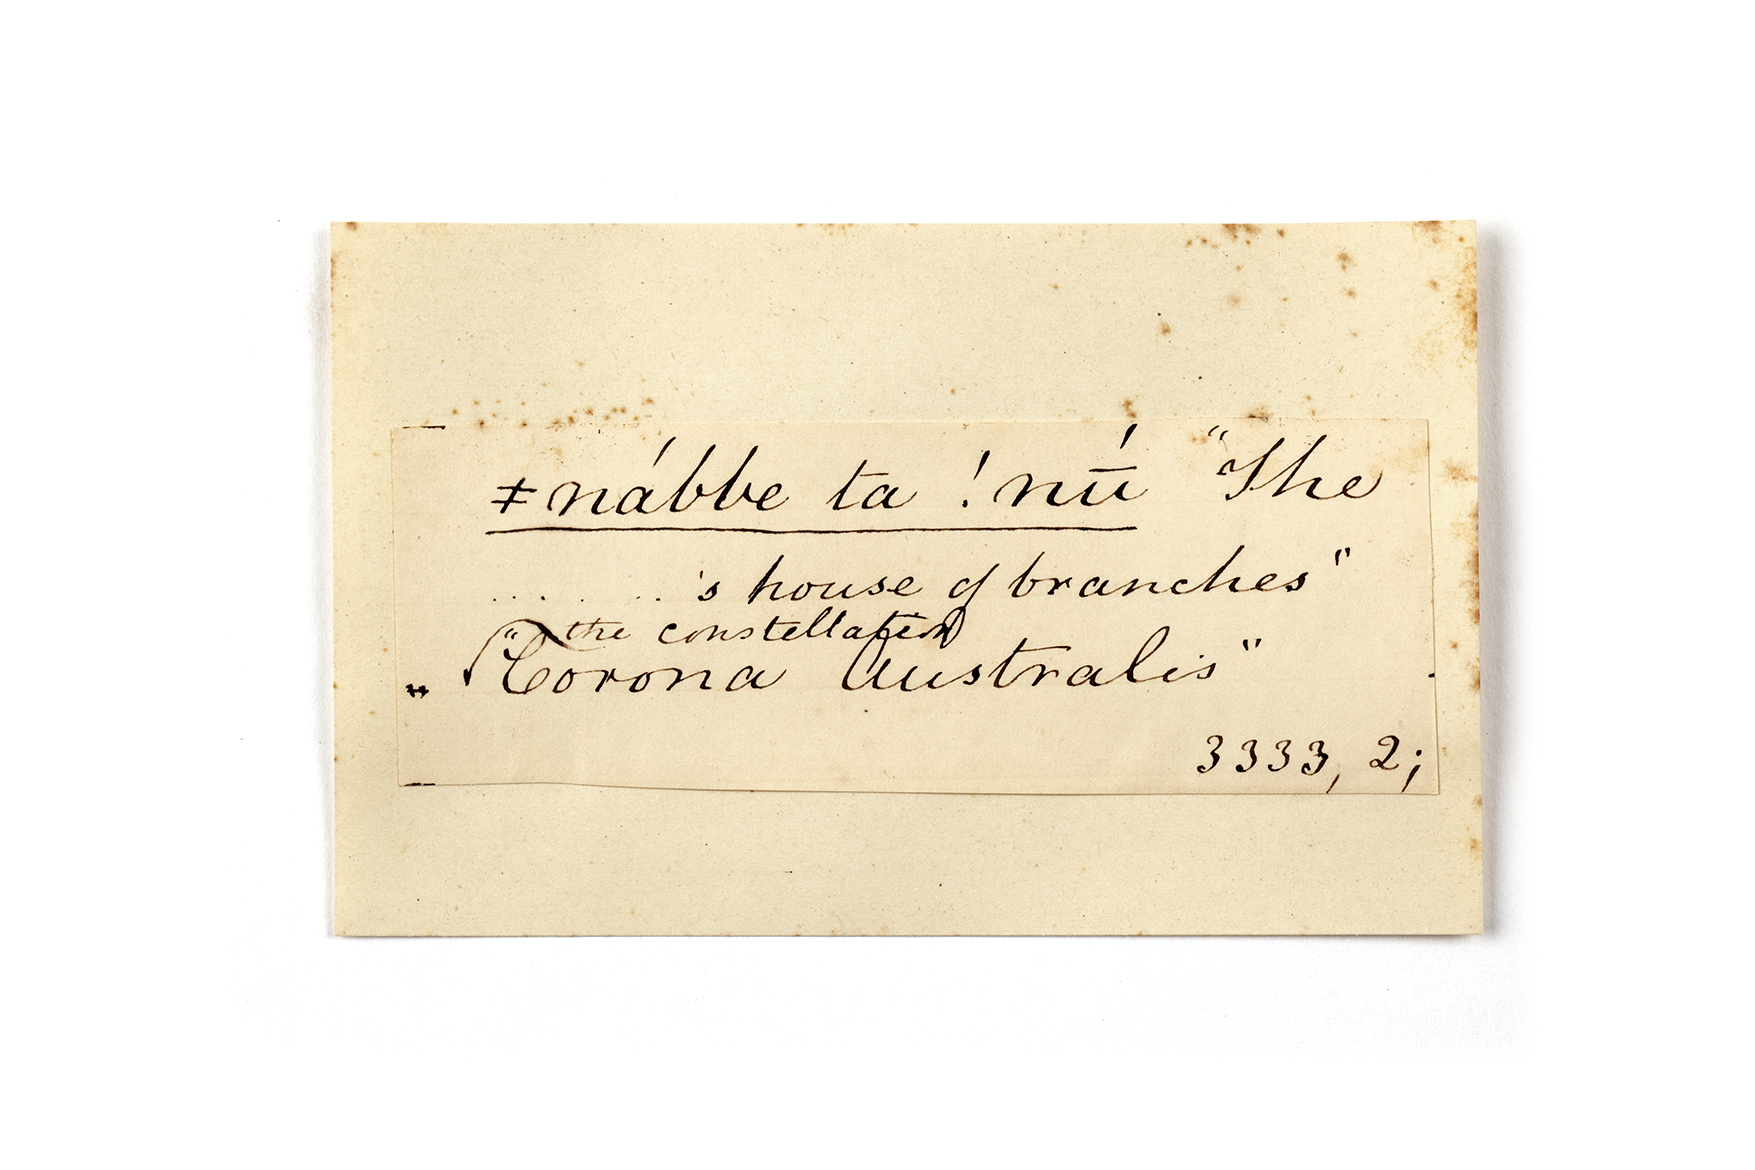 ǂnábbe ta !nū́ "The
. . . . . . 's house of branches"
the constellation
" "Corona Australis"
3333, 2;